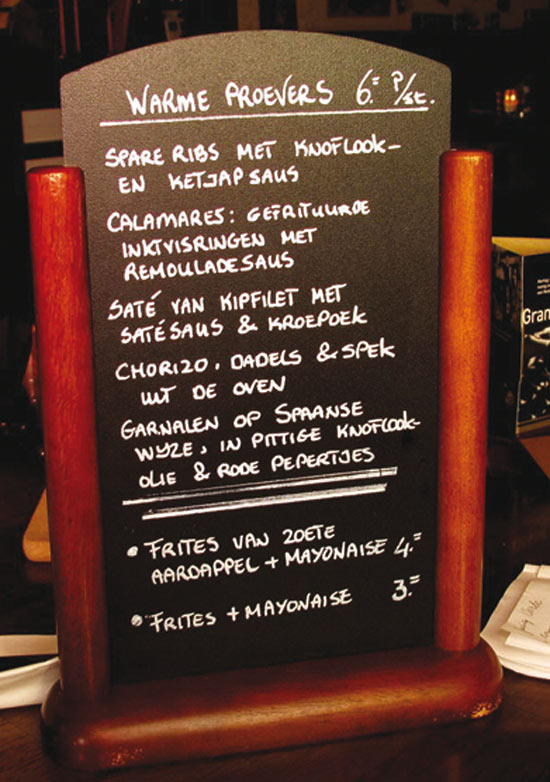 WARME PROEVERS 6.= P/st.
SPARE RIBS MET KNOFLOOK-
EN KETJAP SAUS
CALAMARES: GEFRITUURDE
INKTVISRINGEN MET
REMOULADESAUS
SATÉ VAN KIPFILET MET
SATÉSAUS & KROEPOEK
CHORIZO, DADELS & SPEK
UIT DE OVEN
GARNALEN OP SPAANSE
WIJZE, IN PITTIGE KNOFLOOK-
OLIE & RODE PEPERTJES
• FRITES VAN ZOETE
AARDAPPEL + MAYONAISE 4.=
• FRITES + MAYONAISE 3.=
Gran